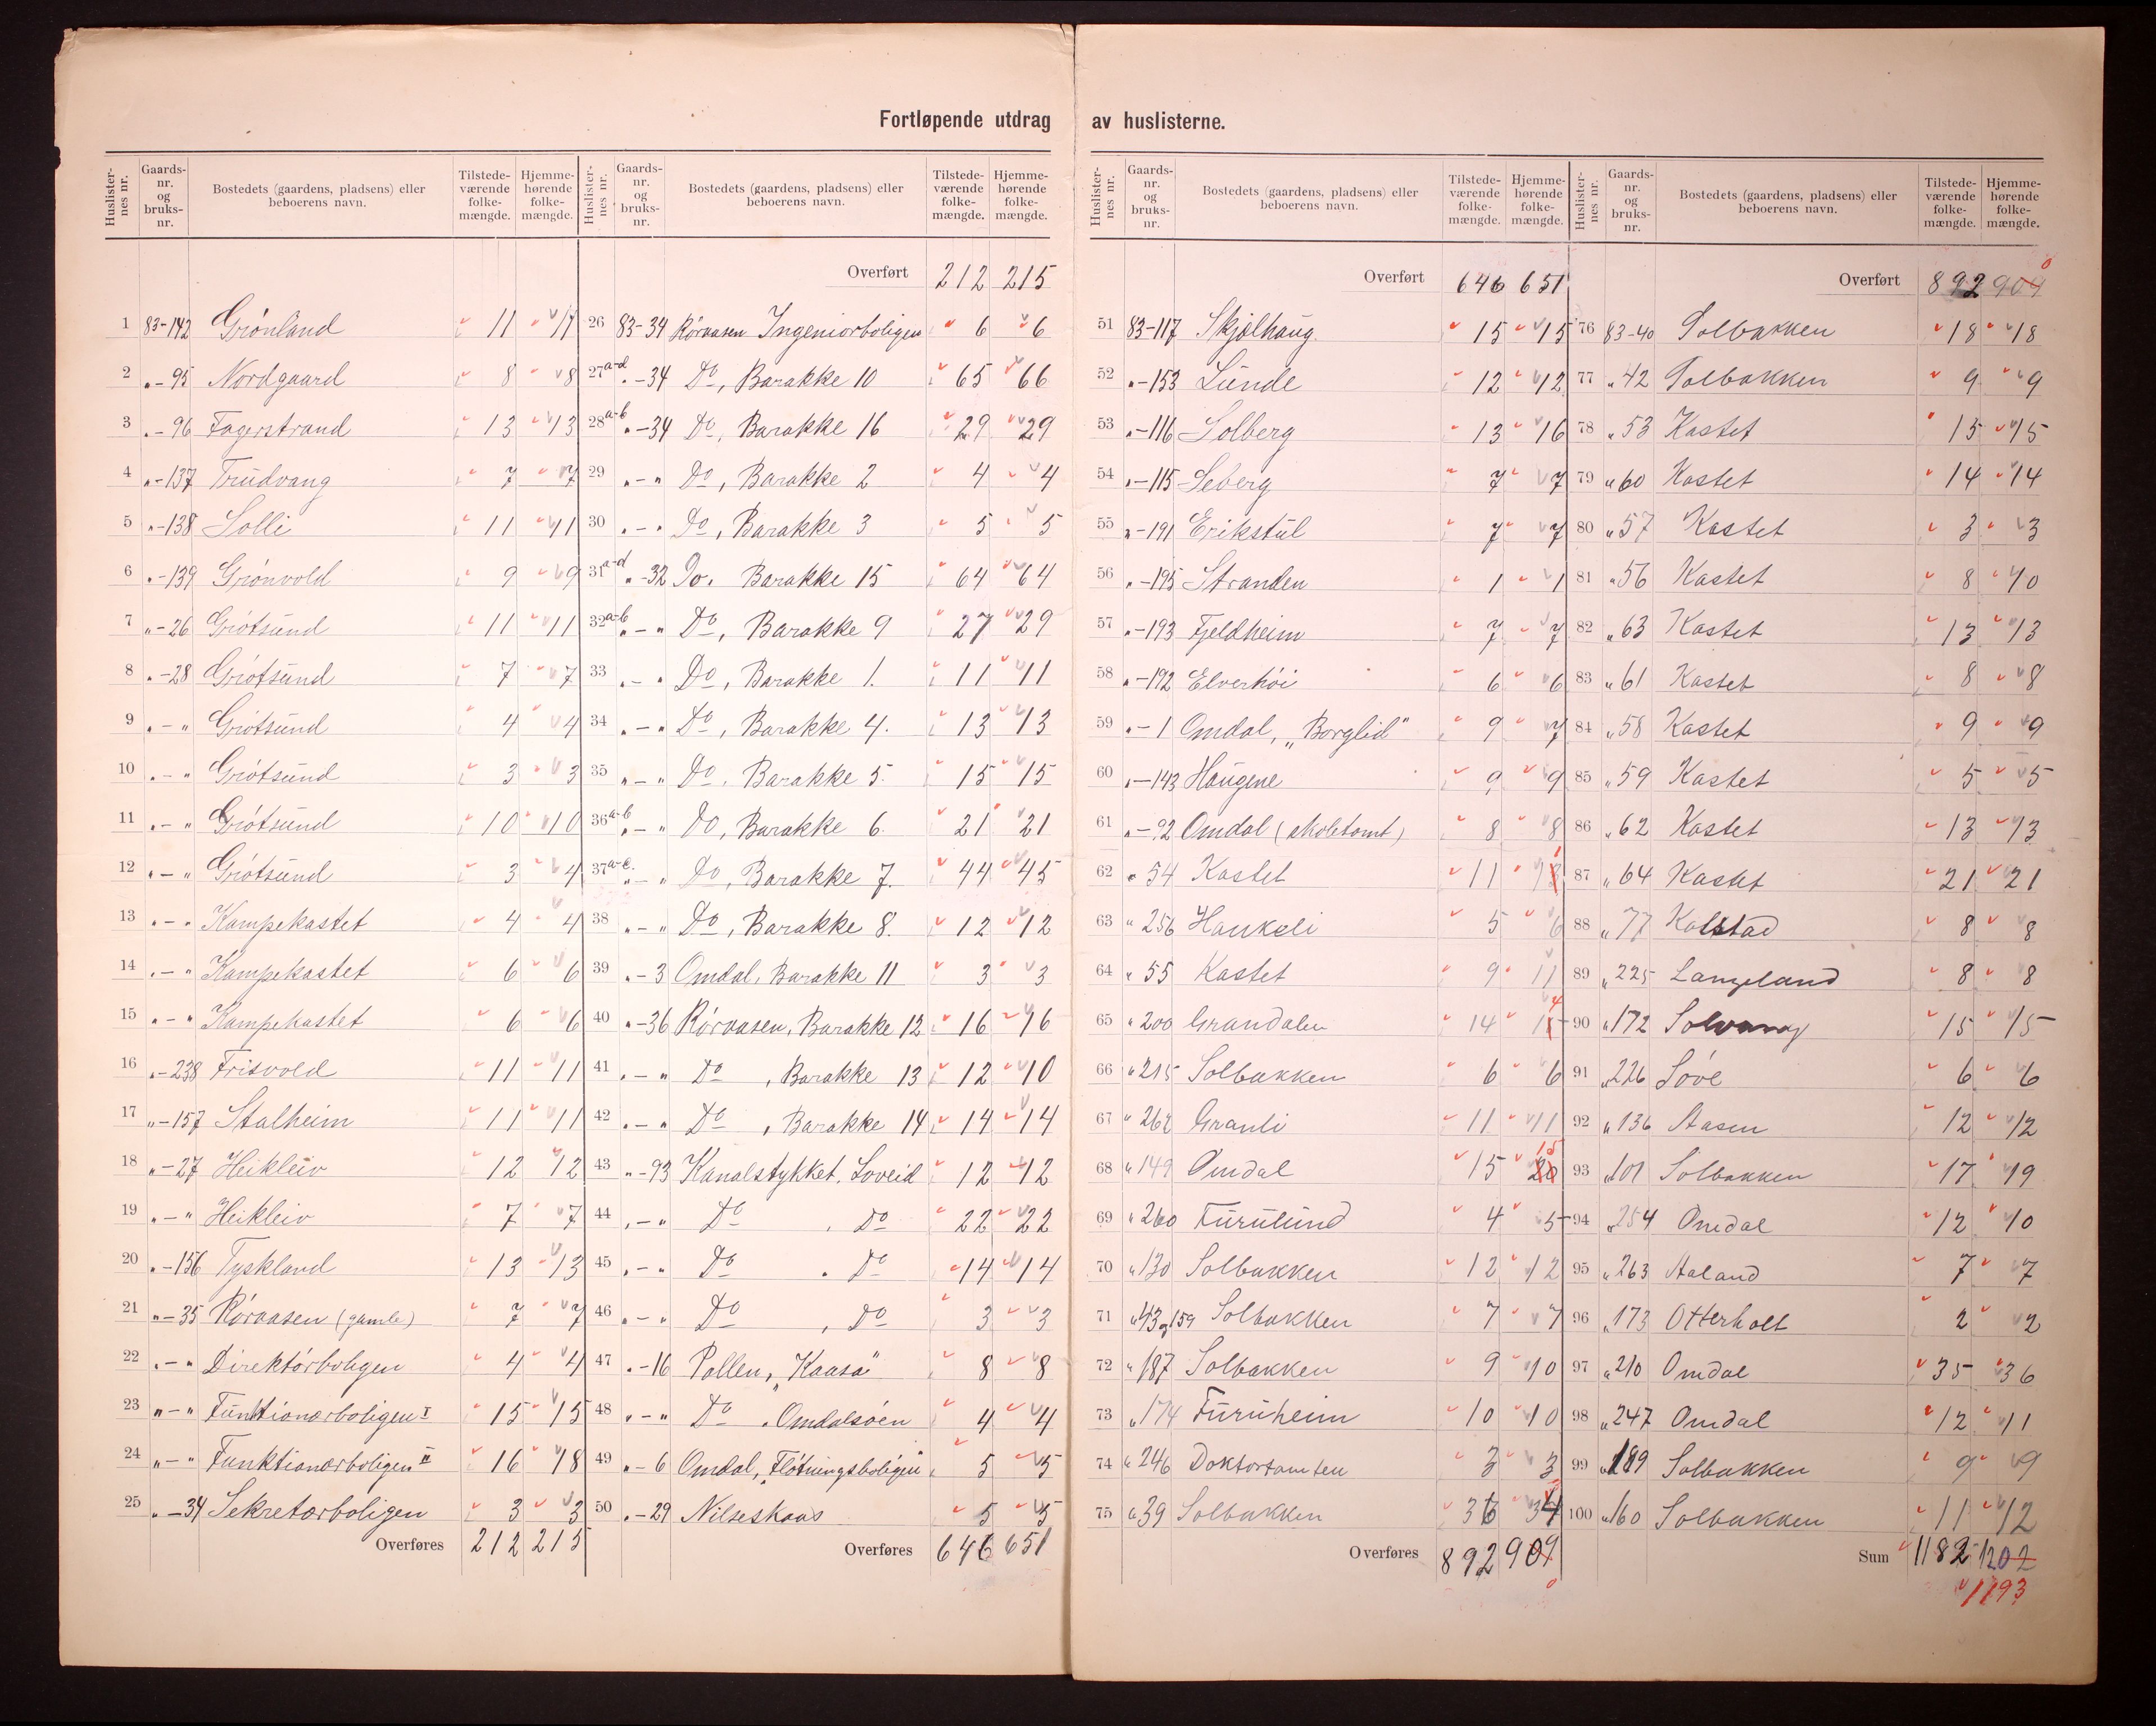 Fortløpende utdrag av huslisterne.
Huslisternes nr. Gaards-nr. og bruks-nr. Bostedets (gaardens, pladsens) eller beboerens navn. Tilstedeværende folkemængde. Hjemmehørende folkemængde.
1 83-142 Grönland 11 11
2 „-95 Nordgaard 8 8
3 „-96 Fagerstrand 13 13
4 „-137 Trudvang 7 7
5 „-138 Solli 11 11
6 „-139 Grönvold 9 9
7 „-26 Grötsund 11 11
8 „-28 Grötsund 7 7
9 „-„ Grötsund 4 4
10 „-„ Grötsund 3 3
11 „-„ Grötsund 10 10
12 „-„ Grötsund 3 4
13 „-„ Kampekastet 4 4
14 „-„ Kampekastet 6 6
15 „-„ Kampekastet 6 6
16 „-238 Frisvold 11 11
17 „-157 Stalheim 11 11
18 „-27 Heikleiv 12 12
19 „-„ Heikleiv 7 7
20 „-156 Tyskland 13 13
21 „-35 Röraasen (gamle) 7 7
22 „-„ Direktörboligen 4 4
23 „-„ Funktionærboligen I 15 15
24 „-„ Funktionærboligen II 16 18
25 „-34 Sekretærboligen 3 3
Overføres 212 215
Huslisternes nr. Gaards-nr. og bruks-nr. Bostedets (gaardens, pladsens) eller beboerens navn. Tilstedeværende folkemængde. Hjemmehørende folkemængde.
Overført 212 215
26 83-34 Röraasen Ingeniorboligen 6 6
27 a-d „-34 Do, Barakke 10 65 66
28 a-b „-34 Do, Barakke 16 29 29
29 „-„ Do, Barakke 2 4 4
30 „-„ Do, Barakke 3 5 5
31 a-d „-32 Do. Barakke 15 64 64
32 a-b „-„ Do, Barakke 9 27 29
33 „-„ Do, Barakke 1. 11 11
34 „-„ Do, Barakke 4. 13 13
35 „-„ Do. Barakke 5. 15 15
36 a-b „-„ Do, Barakke 6. 21 21
37 a-c. „-„ Do, Barakke 7. 44 45
38 „-„ Do, Barakke 8. 12 12
39 „-3 Omdal, Barakke 11 3 3
40 „-36 Röraasen, Barakke 12 16 16
41 „-„ Do , Barakke 13 12 10
42 „-„ Do , Barakke 14 14 14
43 „-93 Kanalstykket, Loveid 12 12
44 „-„ Do , Do 22 22
45 „-„ Do , Do 14 14
46 „-„ Do , Do 3 3
47 „-16 Pollen, „Kaasa" 8 8
48 „-„ Do . Omdalsöen 4 4
49 „-6 Omdal, „Flötningsboligen" 5 5
50 „-29 Nilseskaas 5 5
Overføres 646 651
Huslisternes nr. Gaards-nr. og bruks-nr. Bostedets (gaardens, pladsens) eller beboerens navn. Tilstedeværende folkemængde. Hjemmehørende folkemængde.
Overført 646 651
51 83-117 Skjølhaug 15 15
52 „-153 Lunde 12 12
53 „-116 Solberg 13 16
54 „-115 Seberg 7 7
55 „-191 Erikstul 7 7
56 „-195 Stranden 1 1
57 „-193 Fjeldheim 7 7
58 „-192 Elverhöi 6 6
59 „-1 Omdal, „Borglid" 9 7
60 „-143 Haugene 9 9
61 „-92 Omdal (skoletomt) 8 8
62 „ 54 Kastet 11
63 „ 256 Haukeli 5 6
64 „ 55 Kastet 9 11
65 „ 200 Grandalen 14
66 „ 215 Solbakken 6 6
67 „ 262 Granli 11 11
68 „ 149 Omdal 15 20 15
69 „ 260 Furulund 4 5
70 „ 130 Solbakken 12 12
71 „ 43 og 159 Solbakken 7 7
72 „ 187 Solbakken 9 10
73 „ 174 Furuheim 10 10
74 „ 246 Doktortomten 3 3
75 „ 39 Solbakken 36 34
Overføres 892 909 0
Huslisternes nr. Gaards-nr. og bruks-nr. Bostedets (gaardens, pladsens) eller beboerens navn. Tilstedeværende folkemængde. Hjemmehørende folkemængde.
Overført 892 909 0
76 83-40 Solbakken 18 18
77 „ 42 Solbakken 9 9
78 „ 53 Kastet 15 15
79 „ 60 Kastet 14 14
80 „ 57 Kastet 3 3
81 „ 56 Kastet 8 10
82 „ 63 Kastet 13 13
83 „ 61 Kastet 8 8
84 „ 58 Kastet 9 9
85 „ 59 Kastet 5 5
86 „ 62 Kastet 13 13
87 „ 64 Kastet 21 21
88 „ 77 Kolstad 8 8
89 „ 225 Langeland 8 8
90 „ 172 Solvang 15 15
91 „ 226 Söve 6 6
92 „ 136 Aasen 12 12
93 „ 101 Solbakken 17 19
94 „ 254 Omdal 12 10
95 „ 263 Aaland 7 7
96 „ 173 Otterholt 2 2
97 „ 210 Omdal 35 36
98 „ 247 Omdal 12 11
99 „ 189 Solbakken 9 9
100 „ 160 Solbakken 11 12
Sum 1182 1202
1193